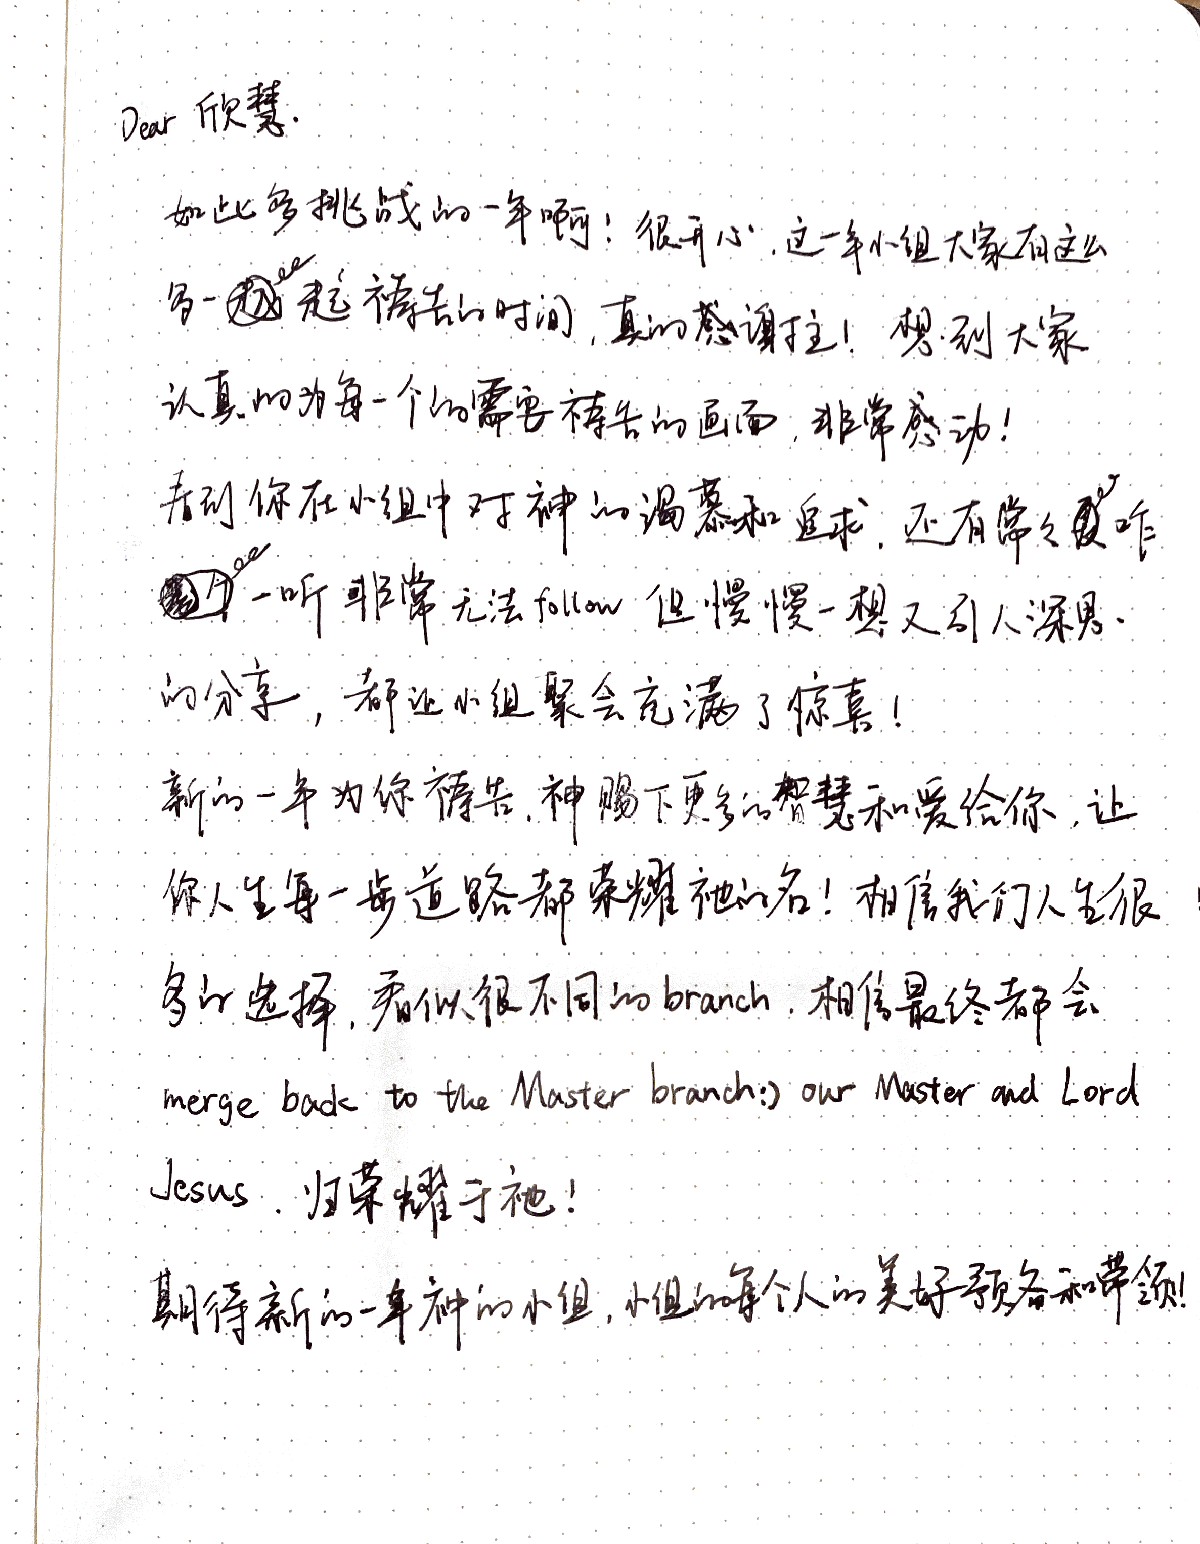 Dear 欣慧.
如此多挑战的一年啊！很开心,这一年小组大家有这么
多一起祷告的时间,真的感谢主！想到大家
认真的为每一个的需要祷告的画面,非常感动！
看到你在小组中对神的渴慕和追求,还有常々咋
一听非常无法follow 但慢慢一想又引人深思.
的分享,都让小组聚会充满了惊喜！
新的一年为你祷告,神赐下更多的智慧和爱给你,让
你人生每一步道路都荣耀祂的名！相信我们人生很
多的选择,看似很不同的branch.相信最终都会
merge back to the Master branch:) our Master and Lord
Jesus.归荣耀于祂！
期待新的一年神的小组,小组的每个人的美好预备和带领！